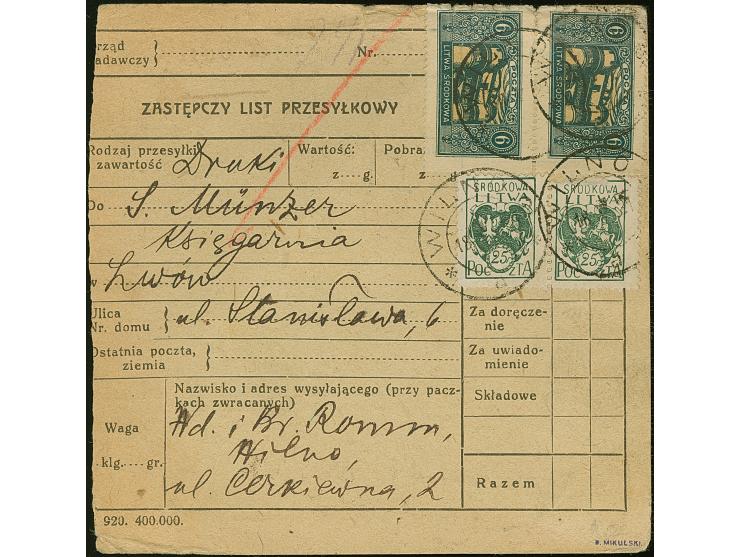 rząd
adawczy
Nr.
ZASTĘPCZY LIST PRZESYŁKOWY
Rodzaj przesyłki
i zawartość
Druki
Wartość:
z g.
Pobra
z
Do S. Münzer
Księgarnia
w Lwów
Ulica
Nr. domu
ul. Stanisława, 6
Ostatnia poczta,
ziemia
Waga
klg. gr.
Nazwisko i adres wysyłającego (przy pacz-
kach zwracanych)
Wd. i Br. Romm,
Wilno,
ul. Cerkiewna, 2
Za doręcze-
nie
Za uwiado-
mienie
Składowe
Razem
920. 400.000.
6
LITWA ŚRODKOWA
6
6
LITWA ŚRODKOWA
6
ŚRODKOWA
LITWA
25
POCZTA
ŚRODKOWA
LITWA
25
POCZTA
WILNO
B. MIKULSKI.